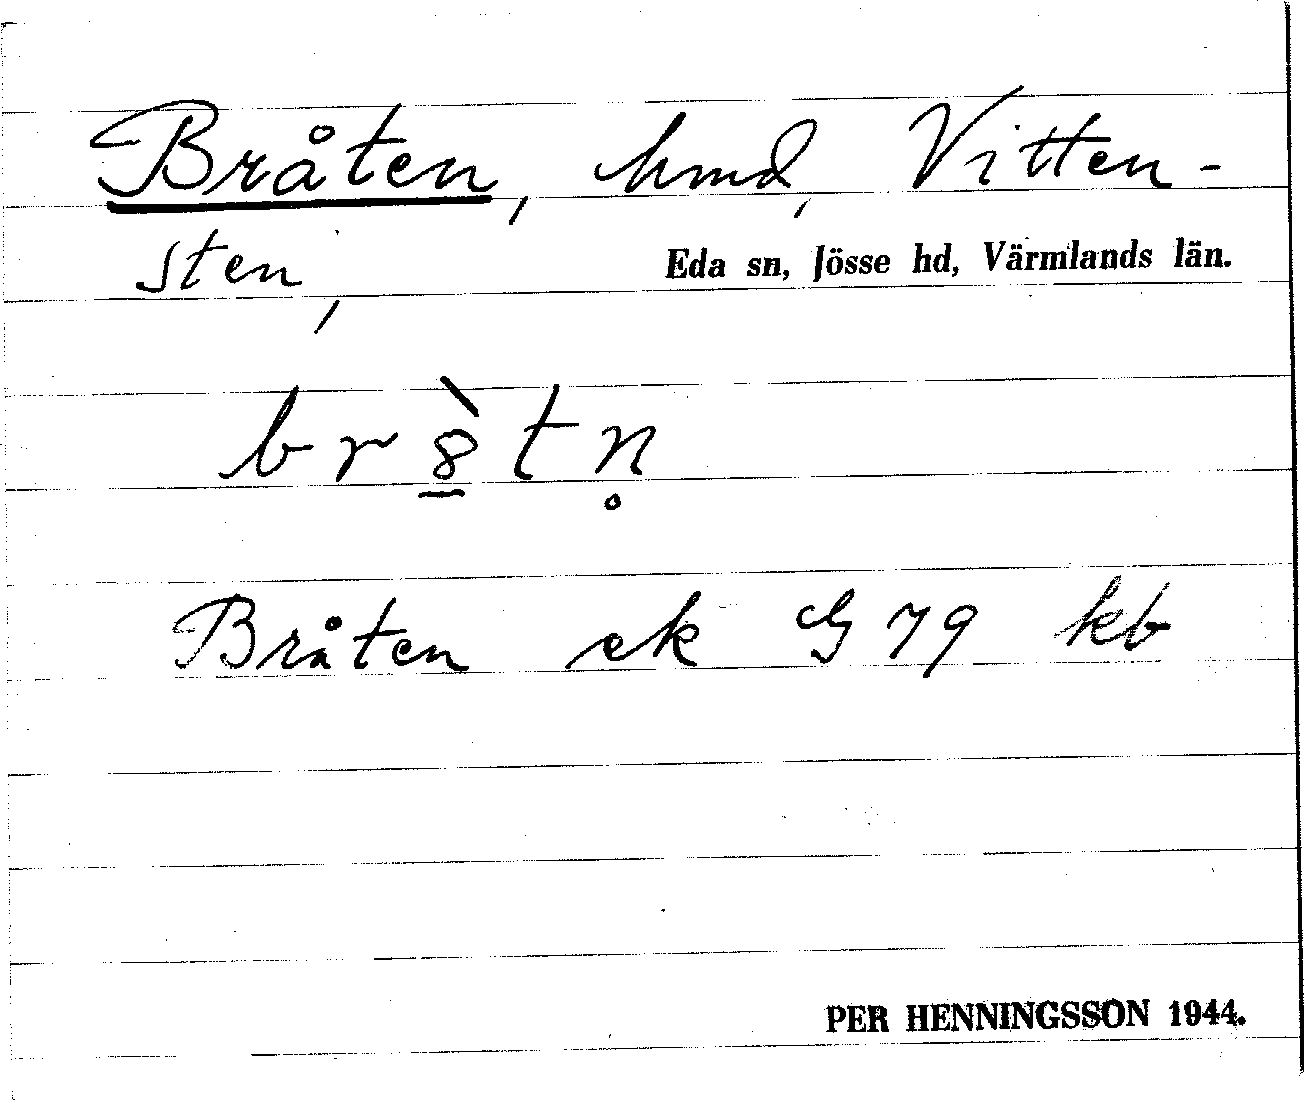 Bråten, hmd, Vitten-
sten,
Eda sn, Jösse hd, Värmlands län.
br8̲̀tn̥
Bråten ek G 79 kb
PER HENNINGSSON 1944.